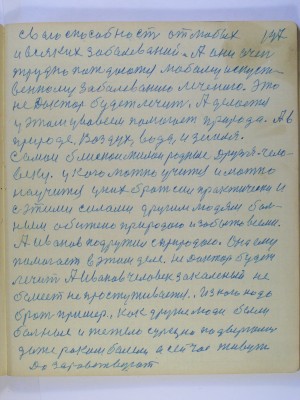 свою способность от любых 197
и всяких заболеваний. А они очен
трудно поддаются любому искусст-
венному заболеванию лечению. Это
не Доктор будет лечит. А делается
у этом условии помогает природа. А в
природе, воздух, вода, и земля.
Самой близкой милой родние Друзья чело-
веку. у кого можно учится и можно
научится у них братски практически и
с этими силами другим людям бол-
ным обижено природою и забыто всеми.
А Иванов подружил с природою. Она ему
помогает в этом деле. не Доктор будет
лечит А Иванов человек закаленый не
болеет не простуживается. Из кого надо
брат пример. Как другие люди были
болные и тяжело сумели подвержены
даже раком болели, а сейчас живут
До здравствуют